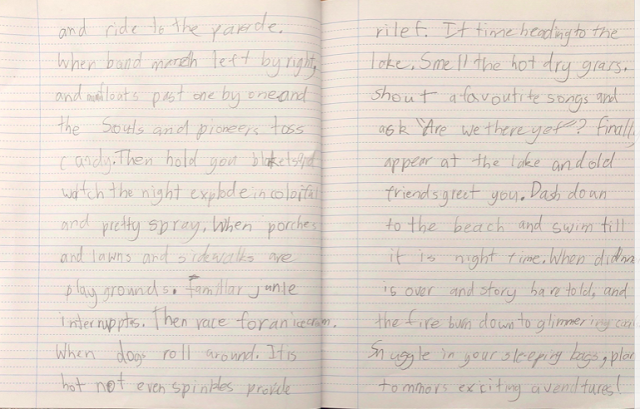 and ride to the parade.
When band march left by right,
and floats past one by one and
the Souls and pioneers toss
candy. Then hold you
watch the night explode in colorful
and pretty spray. When porches
and lawns and sidewalks are
play grounds. Familiar junle
interruppts. Then race for an icecream.
When dogs roll around. It is
hot not even spinkles provide
rilef. It time heading to the
lake. Smell the hot dry grars.
shout a favoutite songs and
ask "Are we there yet"? Finally
appear at the lake and old
friends greet you. Dash down
to the beach and swim till
it is night time. When
is over and story hare told, and
the fire burn down to glimmering
Snuggle in your sleeping bags, plan
tommors exciting avendtures!